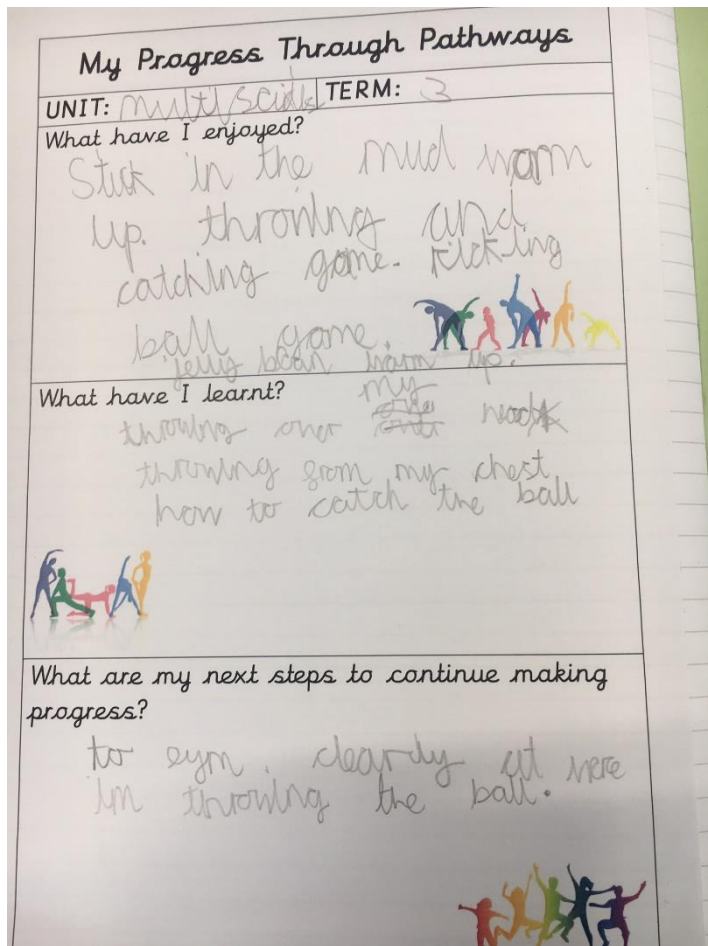 My Progress Through Pathways
UNIT: multi scids TERM: 3
What have I enjoyed?
Stuck in the mud warm
up. throwing and
catching game. Kicking
ball game.
jelly bean warm up.
What have I learnt?
my
throwing over head
throwing from my chest
how to catch the ball
What are my next steps to continue making
progress?
to eym. clearly at were
im throwing the ball.